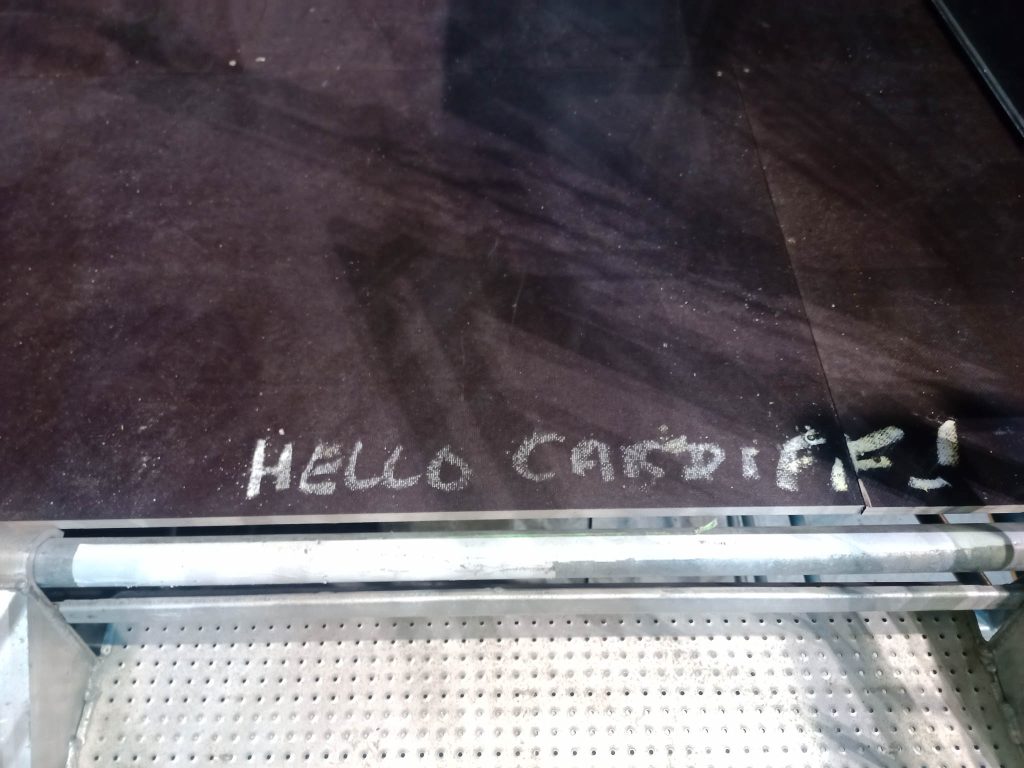 HELLO CARDIFF!